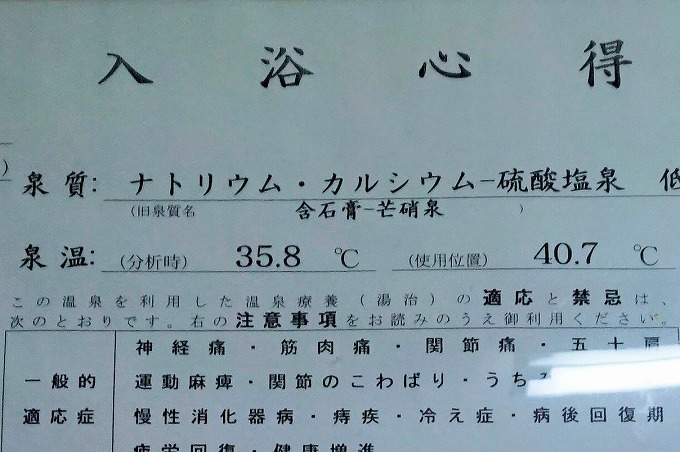 入浴心得
)
泉質: ナトリウム・カルシウム-硫酸塩泉 低
(旧泉質名 含石膏-芒硝泉 )
泉温: (分析時) 35.8 ℃ (使用位置) 40.7 ℃
この温泉を利用した温泉療養(湯治)の適応と禁忌は、
次のとおりです。右の注意事項をお読みのうえ御利用ください。
神経痛・筋肉痛・関節痛・五十肩
一般的 運動麻痺・関節のこわばり・うち
適応症 慢性消化器病・痔疾・冷え症・病後回復期
疲労回復・健康増進